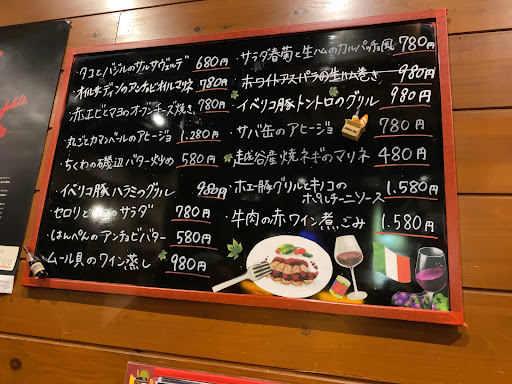 ・タコとバジルのサルサヴェルデ 680円
・オイルサーディンのアンチョビオイルマリネ 780円
・赤エビとマヨのオーブンチーズ焼き 780円
・丸ごとカマンベールのアヒージョ 1.280円
・ちくわの磯辺バター炒め 580円
・イベリコ豚ハラミのグリル 980円
・セロリと のサラダ 780円
・はんぺんのアンチョビバター 580円
・ムール貝のワイン蒸し 980円
・サラダ春菊と生ハムのカルパッチョ風 780円
・ホワイトアスパラの生ハム巻き 980円
・イベリコ豚トントロのグリル 980円
・サバ缶のアヒージョ 780円
・越谷産焼ネギのマリネ 480円
・ホエー豚グリルとキノコの
ポルチーニソース 1.580円
・牛肉の赤ワイン煮込み 1.580円